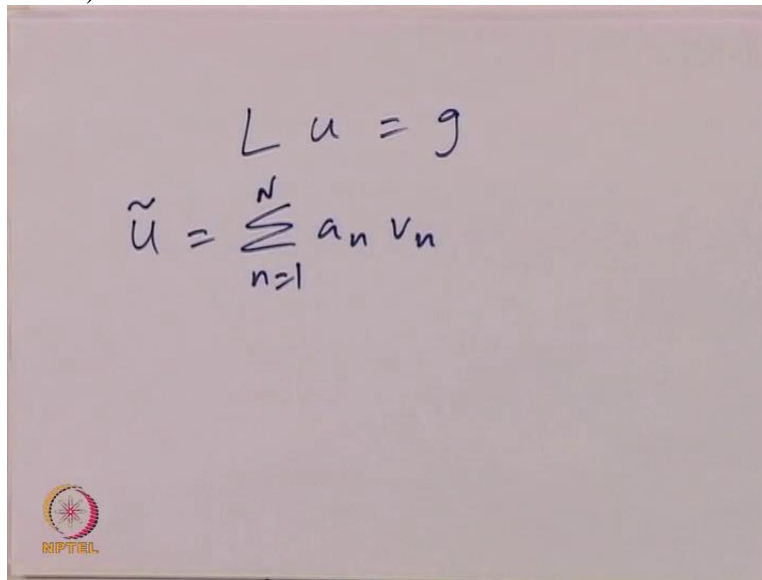 )
L u = g
ũ = N∑n=1 an vn
NPTEL